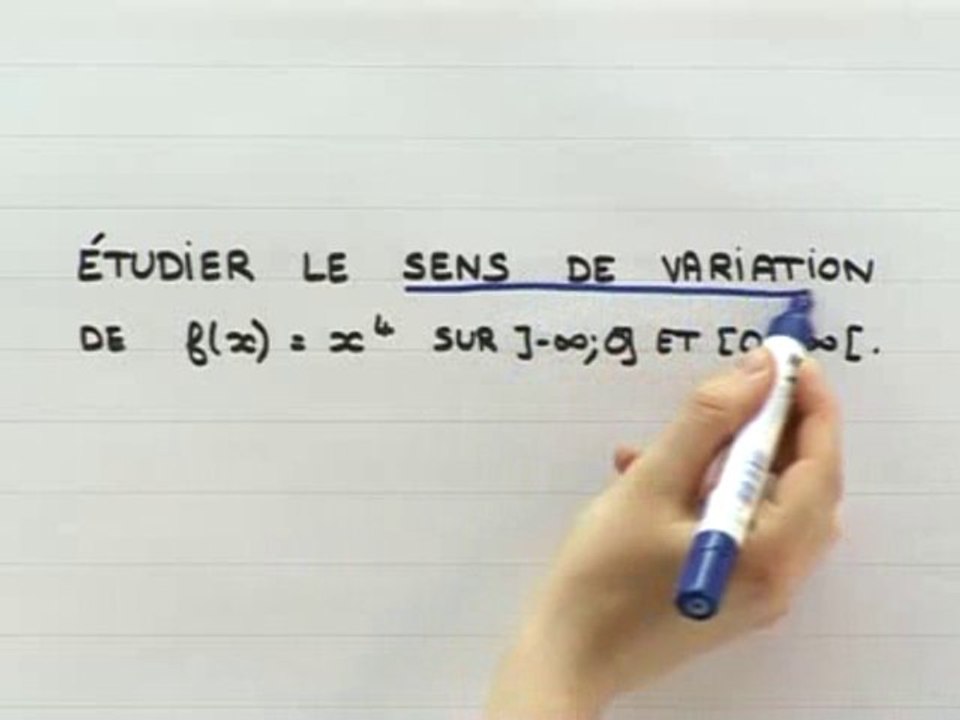 ÉTUDIER LE SENS DE VARIATION
DE f(x) = x⁴ SUR ]-∞;0] ET [0 ∞[.